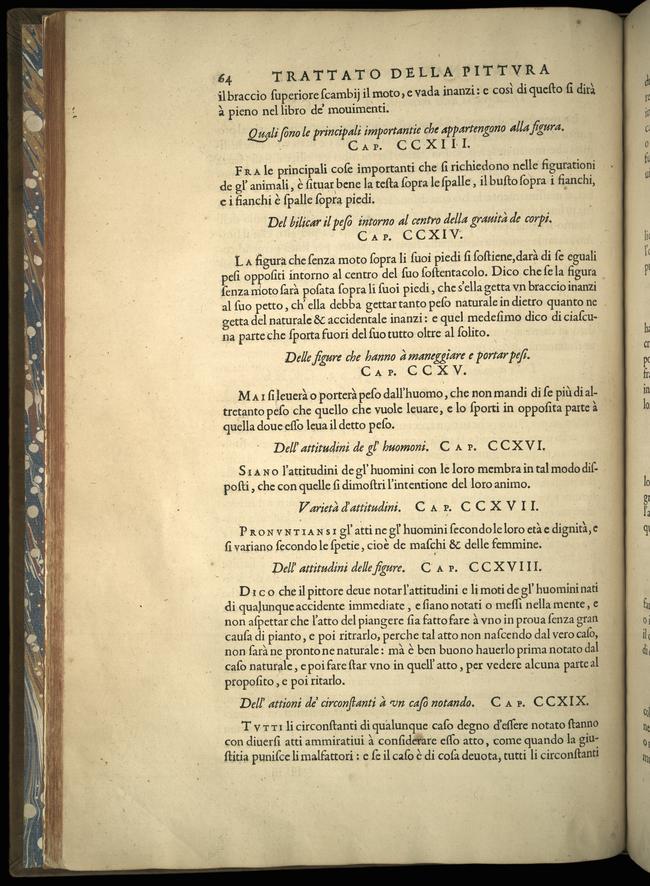 64 TRATTATO DELLA PITTVRA
il braccio ſuperiore ſcambij il moto, e vada inanzi: e così di queſto ſi dirà
à pieno nel libro de' mouimenti.
Quali ſono le principali importantie che appartengono alla figura.
CAP. CCXIII.
FRA le principali coſe importanti che ſi richiedono nelle figurationi
de gl' animali, è ſituar bene la teſta ſopra le ſpalle, il buſto ſopra i fianchi,
e i fianchi è ſpalle ſopra piedi.
Del bilicar il peſo intorno al centro della grauità de corpi.
CAP. CCXIV.
LA figura che ſenza moto ſopra li ſuoi piedi ſi ſoſtiene, darà di ſe eguali
peſi oppoſiti intorno al centro del ſuo ſoſtentacolo. Dico che ſe la figura
ſenza moto ſarà poſata ſopra li ſuoi piedi, che s'ella getta vn braccio inanzi
al ſuo petto, ch' ella debba gettar tanto peſo naturale in dietro quanto ne
getta del naturale & accidentale inanzi: e quel medeſimo dico di ciaſcu-
na parte che ſporta fuori del ſuo tutto oltre al ſolito.
Delle figure che hanno à maneggiare e portar peſi.
CAP. CCXV.
MAI ſi leuerà o porterà peſo dall'huomo, che non mandi di ſe più di al-
tretanto peſo che quello che vuole leuare, e lo ſporti in oppoſita parte à
quella doue eſſo leua il detto peſo.
Dell' attitudini de gl' huomoni. CAP. CCXVI.
SIANO l'attitudini de gl' huomini con le loro membra in tal modo diſ-
poſti, che con quelle ſi dimoſtri l'intentione del loro animo.
Varietà d'attitudini. CAP. CCXVII.
PRONVNTIANSI gl' atti ne gl' huomini ſecondo le loro età e dignità, e
ſi variano ſecondo le ſpetie, cioè de maſchi & delle femmine.
Dell' attitudini delle figure. CAP. CCXVIII.
DICO che il pittore deue notar l'attitudini e li moti de gl' huomini nati
di qualunque accidente immediate, e ſiano notati o meſſi nella mente, e
non aſpettar che l'atto del piangere ſia fatto fare à vno in proua ſenza gran
cauſa di pianto, e poi ritrarlo, perche tal atto non naſcendo dal vero caſo,
non ſarà ne pronto ne naturale: mà è ben buono hauerlo prima notato dal
caſo naturale, e poi fare ſtar vno in quell' atto, per vedere alcuna parte al
propoſito, e poi ritarlo.
Dell' attioni de' circonſtanti à vn caſo notando. CAP. CCXIX.
TVTTI li circonſtanti di qualunque caſo degno d'eſſere notato ſtanno
con diuerſi atti ammiratiui à conſiderare eſſo atto, come quando la giu-
ſtitia puniſce li malfattori: e ſe il caſo è di coſa deuota, tutti li circonſtanti